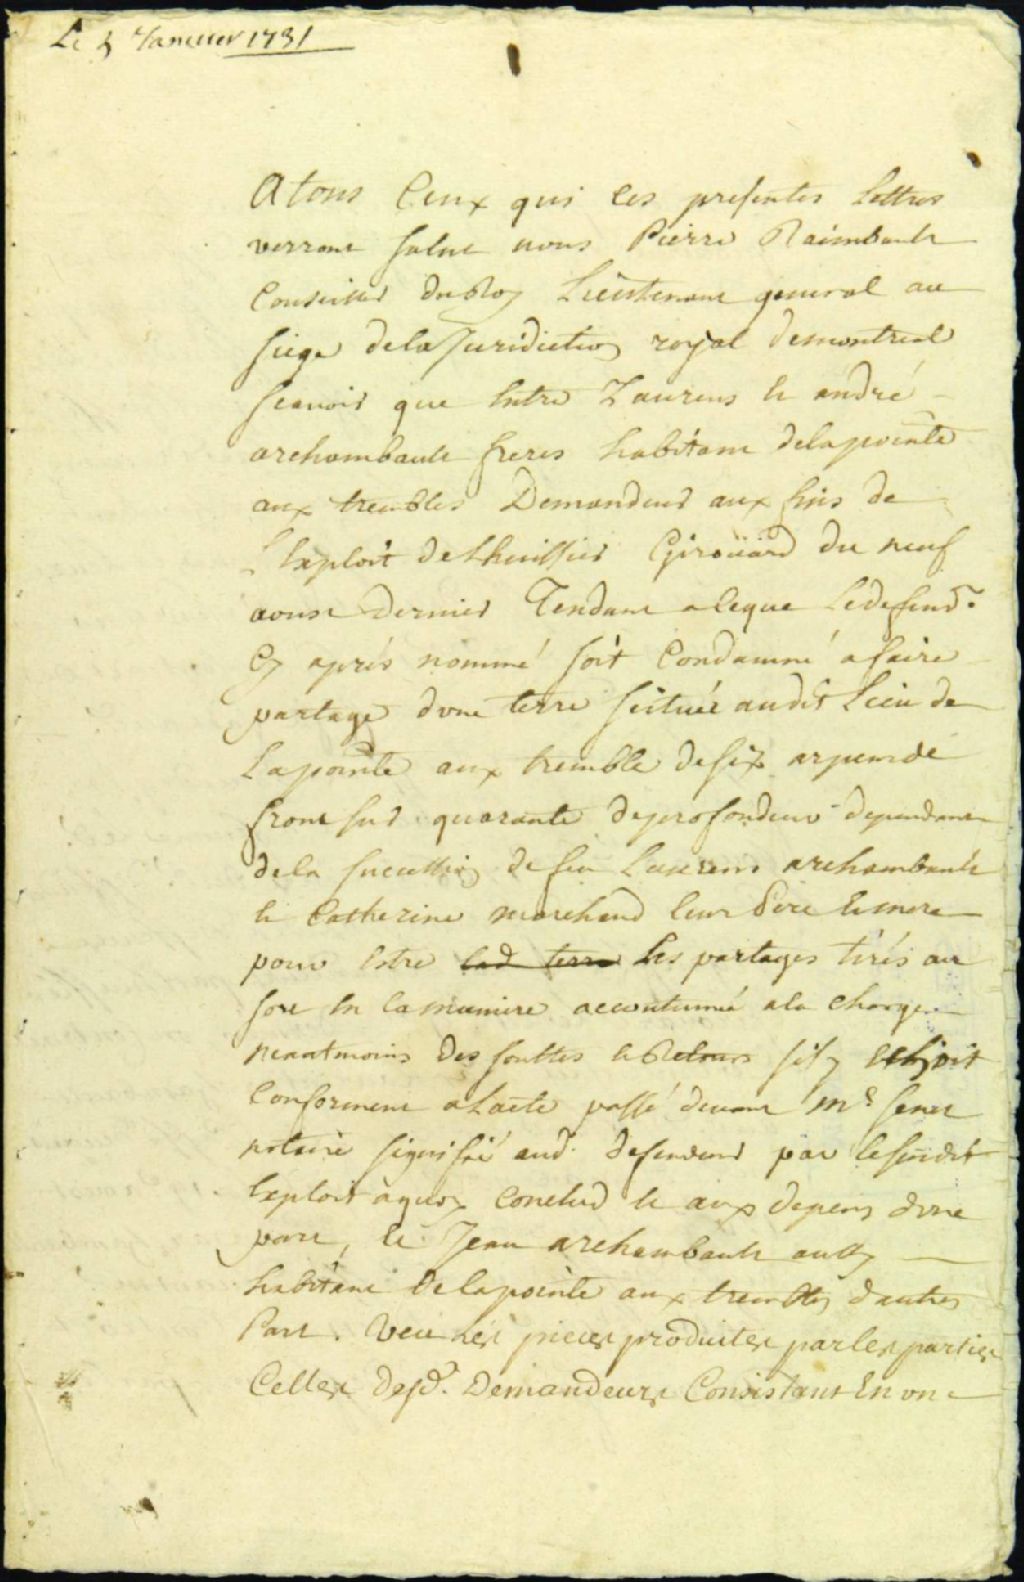 Le 5 Janvier 1731
A tous Ceux qui Ces presentes lettres
verront salut nous Pierre Raimbault
Conseiller du Roy Lieutenant general au
siege de la Juridiction royal de montreal
scavoir que Entre Laurens et andré
archambault freres habitant de la pointe
aux trembles Demandeurs aux fins de
l'exploit de Lhuissier Girouard du neuf
aoust dernier Tendant a ceque Le deffend.r
Cy aprés nommé soit Condamné a faire
partage d'vne terre scituée audit Lieu de
La pointe aux tremble de six arpend de
front sur quarante de profondeur dependant
de la succession de feu Laurens archambault
et Catherine marchand leur Pere et mere
pour Estre lad terre Les partages tirés au
sort En la maniere accoutumée a la charge
neantmoins des soultes et Retours sil y Echoit
Conforment a Lacte passé devant Me Senet
notaire signifié aud. defendeur par le susdit
Exploit a quoy Conclud et aux depens d'vne
part, et Jean archambault aussy
habitant de la pointe aux trembles d'autre
Part. Veu Les pieces produites par les parties
Celles desd. Demandeurs Consistant En vn